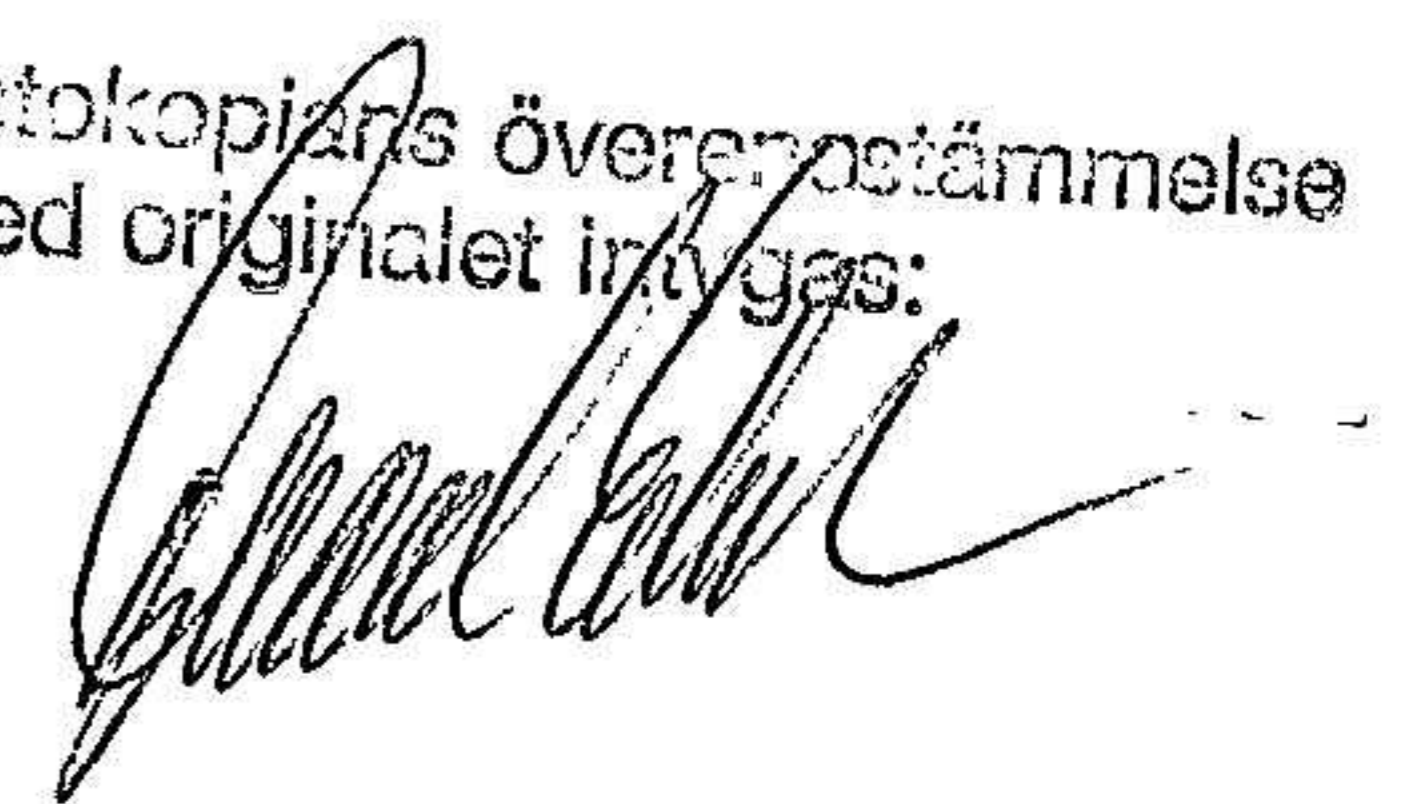 tokopians överensstämmelse
ed originalet intygas: